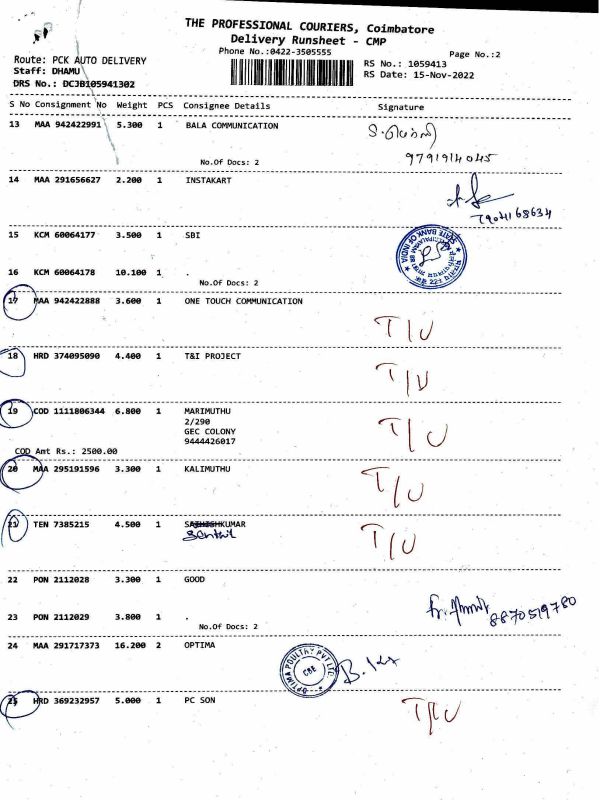 THE PROFESSIONAL COURIERS, Coimbatore
Delivery Runsheet - CMP
Phone No.:0422-3505555
Page No.:2
Route: PCK AUTO DELIVERY
RS No.: 1059413
Staff: DHAMU
RS Date: 15-Nov-2022
DRS No.: DCJB105941302
S No Consignment No Weight PCS Consignee Details Signature
13 MAA 942422991 5.300 1 BALA COMMUNICATION
No.Of Docs: 2 9791914045
14 MAA 291656627 2.200 1 INSTAKART
7904168634
15 KCM 60064177 3.500 1 SBI
STATE BANK OF INDIA
16 KCM 60064178 10.100 1 .
No.Of Docs: 2
17 MAA 942422888 3.600 1 ONE TOUCH COMMUNICATION
T/U
18 HRD 374095090 4.400 1 T&I PROJECT
T/U
19 COD 1111806344 6.800 1 MARIMUTHU
2/290
GEC COLONY T/U
9444426017
COD Amt Rs.: 2500.00
20 MAA 295191596 3.300 1 KALIMUTHU
T/U
21 TEN 7385215 4.500 1 SATHISHKUMAR
Senthil T/U
22 PON 2112028 3.300 1 GOOD
8870519780
23 PON 2112029 3.800 1 .
No.Of Docs: 2
24 MAA 291717373 16.200 2 OPTIMA
OPTIMA POULTRY PVT LTD
CBE
25 HRD 369232957 5.000 1 PC SON
T/U